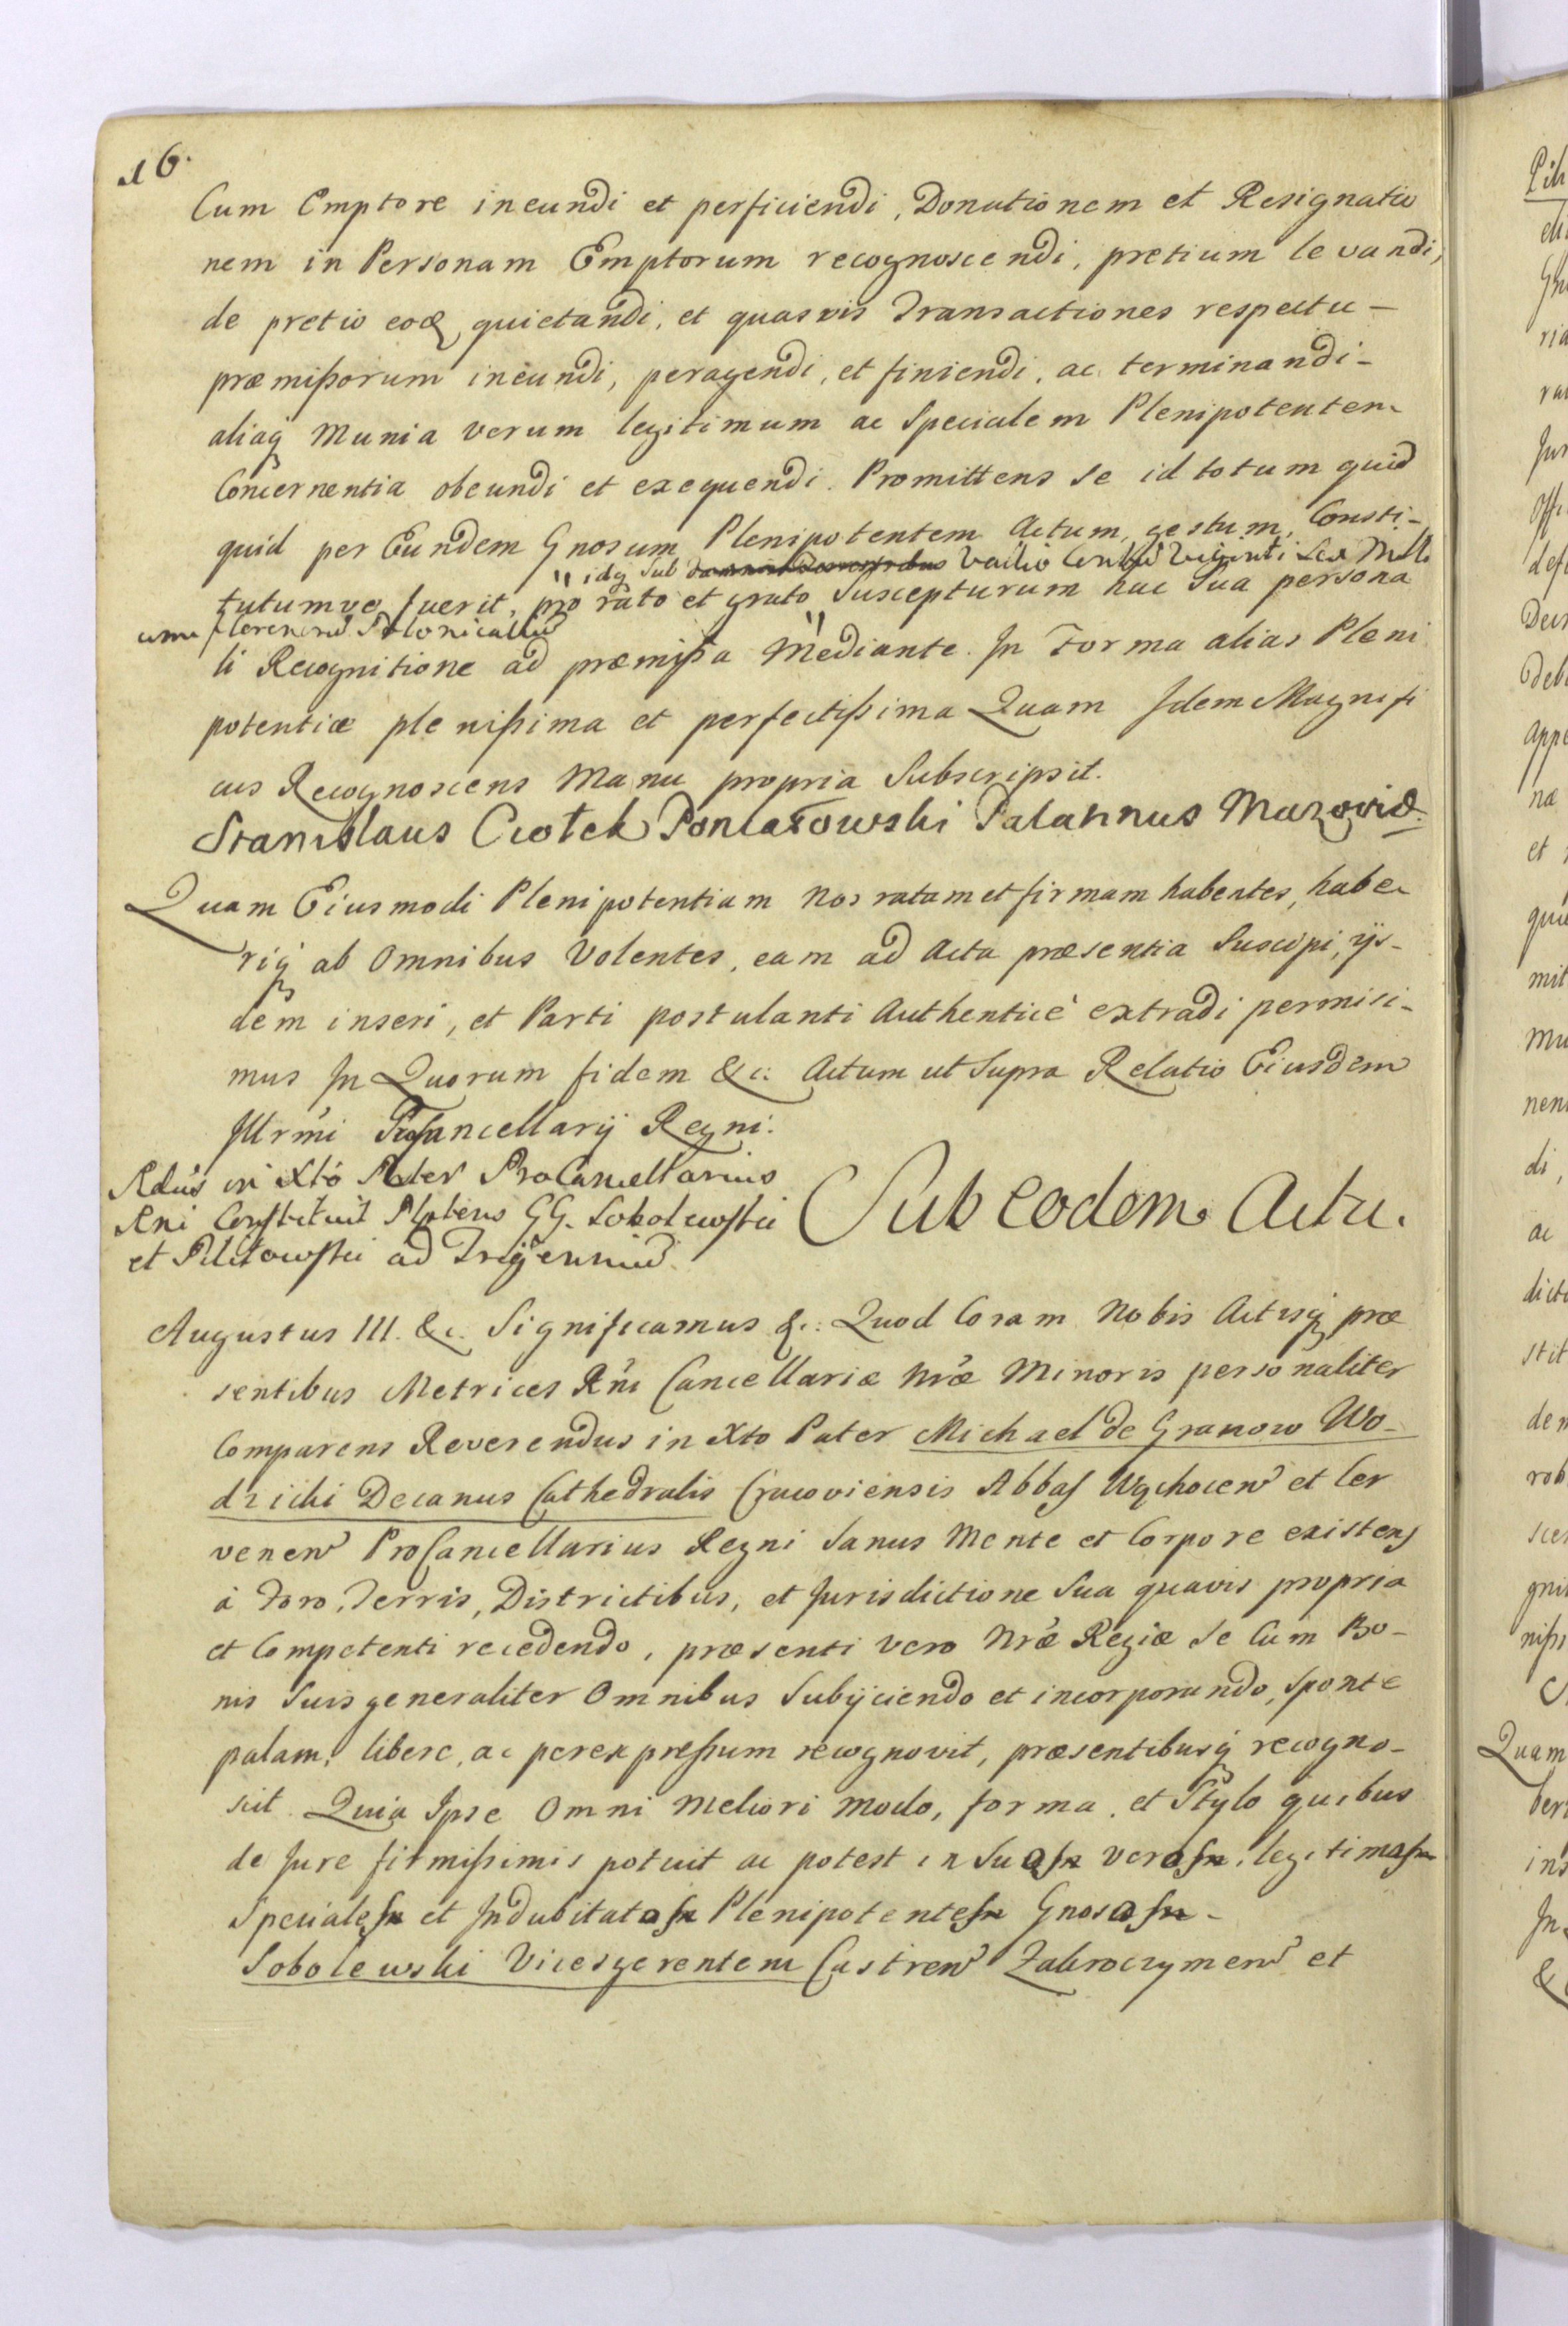 16.
Cum Emptore ineundi et perficiendi, Donationem et Resignatio
nem in Personam Emptorum recognoscendi, pretium levandi,
de pretio eoq, quietandi, et quasvis Transactiones respectu –
præmißorum ineundi, peragendi, et finiendi, ac terminandi –
aliaq Munia verum legitimum ac Specialem Plenipotentem
Concernentia obeundi et exequendi. Promittens se id totum quid
quid per Eundem Gnosum Plenipotentem Actum, gestum, Consti–
" idq Sub Vadio Centu Viginti Sex Milli
tutumve fuerit, pro rato et grato Suscepturum hac Sua persona
umi florenoru Polonicaliu
li Recognitione ad præmißa " Mediante. In Forma alias Pleni
potentiæ plenißima et perfectißima Quam Idem Magnifi
cus Recognoscens Manu propria Subscripsit.
Stanislaus Ciołek Poniatowski Palatinus Mazoviæ.
Quam Eiusmodi Plenipotentiam Nos ratam et firmam habentes, habe
riq ab Omnibus Volentes, eam ad Acta præsentia Suscipi, ijs–
dem inseri, et Parti postulanti Authenticè extradi permisi–
mus In Quorum fidem &c: Actum ut Supra Relatio Eiusdem
Illrmi ProCancellarij Regni:
Rdus in Xto Pater ProCancellarius
Rni Constituit Plptens GG. Sobolewski
et ad Tryenniu
Sub Eodem Actu.
Augustus III. &c. Significamus &c: Quod Coram Nobis Actisq præ
sentibus Metrices Rni Cancellariæ Nræ Minoris personaliter
Comparens Reverendus in Xto Pater Michael de Granow Wo–
dzicki Decanus Cathedralis Cracoviensis Abbas Wąchocen et Cer
venen ProCancellarius Regni Sanus Mente et Corpore existens
à Foro, Terris, Districtibus, et Jurisdictione Sua quavis propria
et Competenti recedendo, præsenti vero Nræ Regiæ Se Cum Bo–
nis Suis generaliter Omnibus Subijciendo et incorporando, Sponte
palam, libere, ac per expreßum recognovit, præsentibusq recogno–
scit. Quia Ipse Omni Meliori Modo, forma, et Stylo quibus
de Jure firmißimis potuit ac potest in Suos veros, legitimos
Speciales et Indubitatos Plenipotentes Gnosos –
Sobolewski Vicesgerentem Castren Zakroczymen et